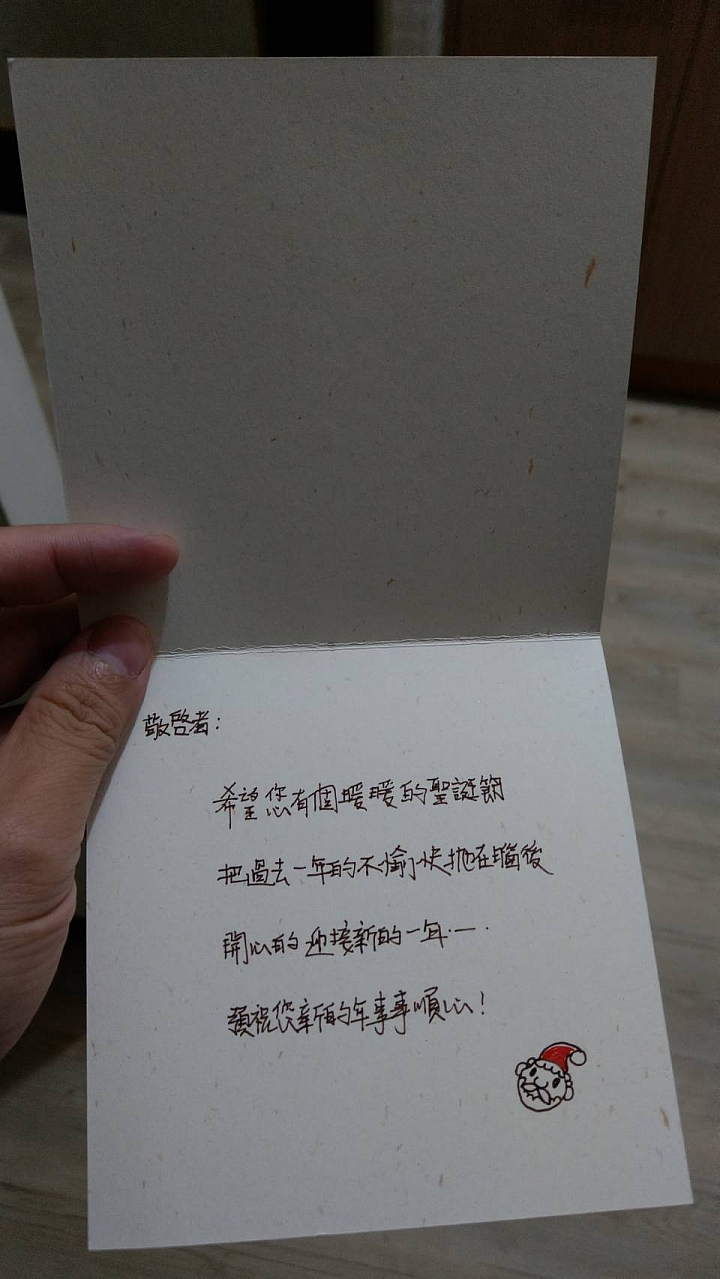 敬啓者:
希望您有個暖暖的聖誕節
把過去一年的不愉快拋在腦後
開心的迎接新的一年…
預祝您新的年事事順心!